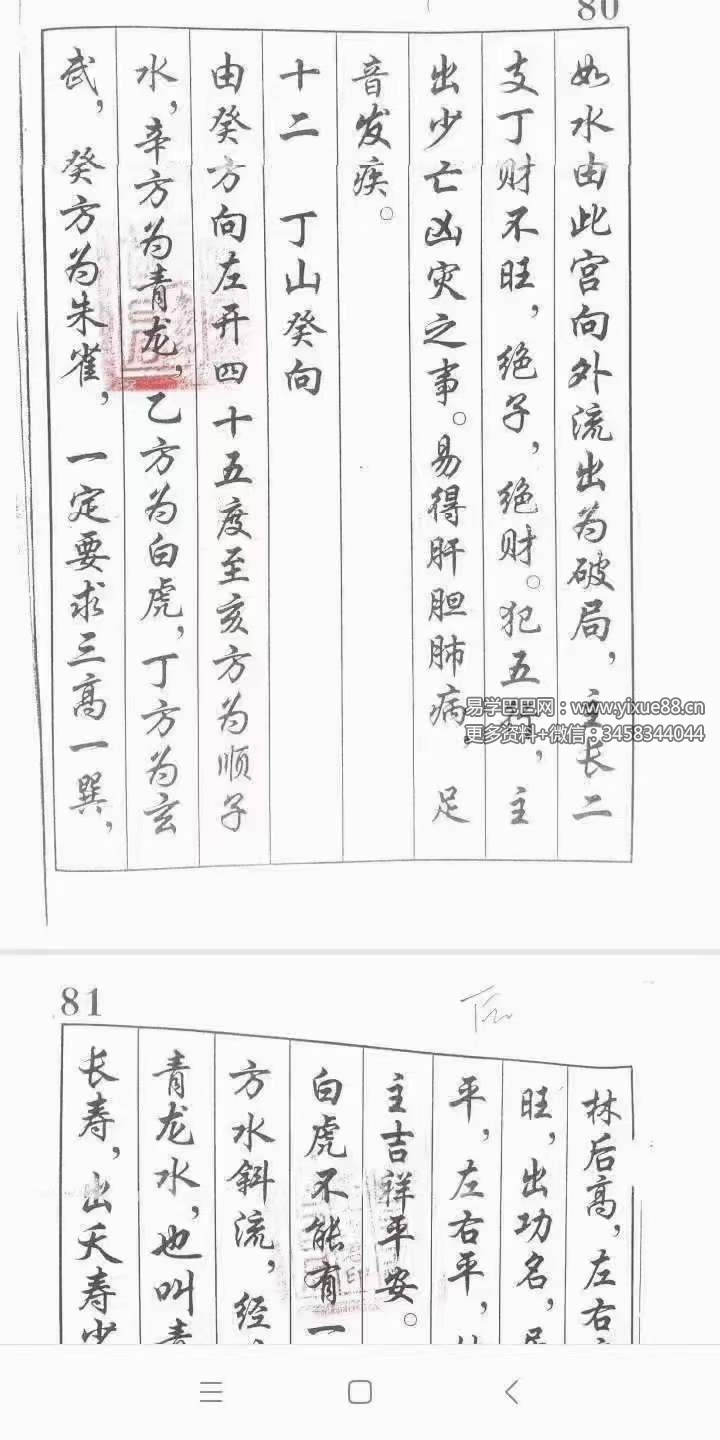 80
如水由此宫向外流出为破局，主长二
支丁财不旺，绝子，绝财。犯五行，主
出少亡凶灾之事。易得肝胆肺病，足
音发疾。
十二 丁山癸向
由癸方向左开四十五度至亥方为顺子
水，辛方为青龙，乙方为白虎，丁方为玄
武，癸方为朱雀，一定要求三高一巽，
易学巴巴网：www.yixue88.cn
更多资料+微信：3458344044
81
林后高，左右
旺，出功名，
平，左右平，
主吉祥平安。
白虎不能有一
方水斜流，经
青龙水，也叫
长寿，出夭寿少